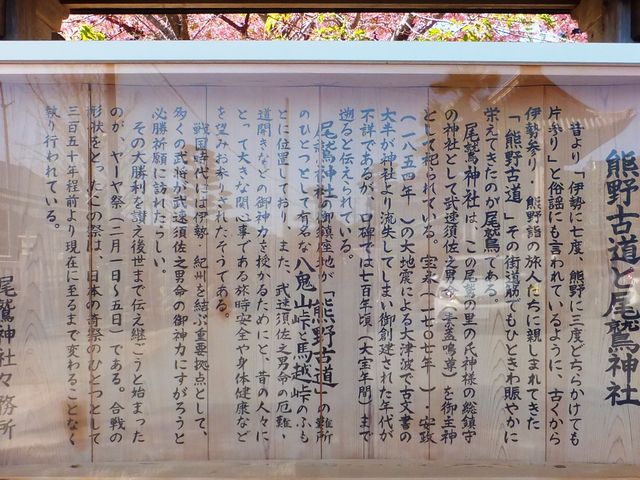 熊野古道と尾鷲神社
昔より「伊勢に七度、熊野に三度どちらかけても
片参り」と俗謡にも言われているように、古くから
伊勢参り、熊野詣の旅人たちに親しまれてきた
「熊野古道」その街道筋でもひときわ賑やかに
栄えてきたのが尾鷲である。
尾鷲神社は、この尾鷲の里の氏神様の総鎮守
の神社として武速須佐之男命(素盞鳴尊)を御主神
として祀られている。宝永(一七〇七年)・安政
(一八五四年)の大地震による大津波で古文書の
大半が神社より流失してしまい御創建された年代が
不詳であるが、口碑では七百年頃(大宝年間)まで
遡ると伝えられている。
尾鷲神社の御鎮座地が「熊野古道」の難所
のひとつとして有名な八鬼山峠と馬越峠のふも
とに位置しており、また、武速須佐之男命の厄難、
道開きなどの御神力を授かるためにと、昔の人々に
とって大きな関心事である旅時安全や身体健康など
を望みお参りされたそうである。
戦国時代には伊勢・紀州を結ぶ重要拠点として、
多くの武将が武速須佐之男命の御神力にすがろうと
必勝祈願に訪れたらしい。
その大勝利を讃え後世まで伝え継ごうと始まった
のが、ヤーヤ祭(二月一日〜五日)である。合戦の
形状をとったこの祭は、日本の奇祭のひとつとして
三百五十年程前より現在に至るまで変わることなく
執り行われている。
尾鷲神社々務所